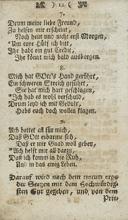 ) 12. (
7.
Drum meine liebe Freund,
Zu helfen mir erscheint,
Noch heut und nicht erst Morgen,
Um eure Hülf ich bitt,
Ihr habt ein gut Credit,
Ihr könnt mich bald ausborgen.
8.
Mich hat GOttes Hand gerührt,
Ein schweren Streich geführt,
Sie hat mich hart geschlagen,
Ich hab es wohl verschuld,
Drum leyd ich mit Gedult,
Habs auch doch wollen klagen.
9.
Ach hättet all für mich,
Daß GOtt erbarme sich,
Daß er mir Gnad woll geben,
Ach helfft mir all darzu,
Daß ich komm in die Ruh,
Und in das ewig Leben.
Darauf wird nach dem
der Geitzen mit dem
Gut gegeben, und von dem